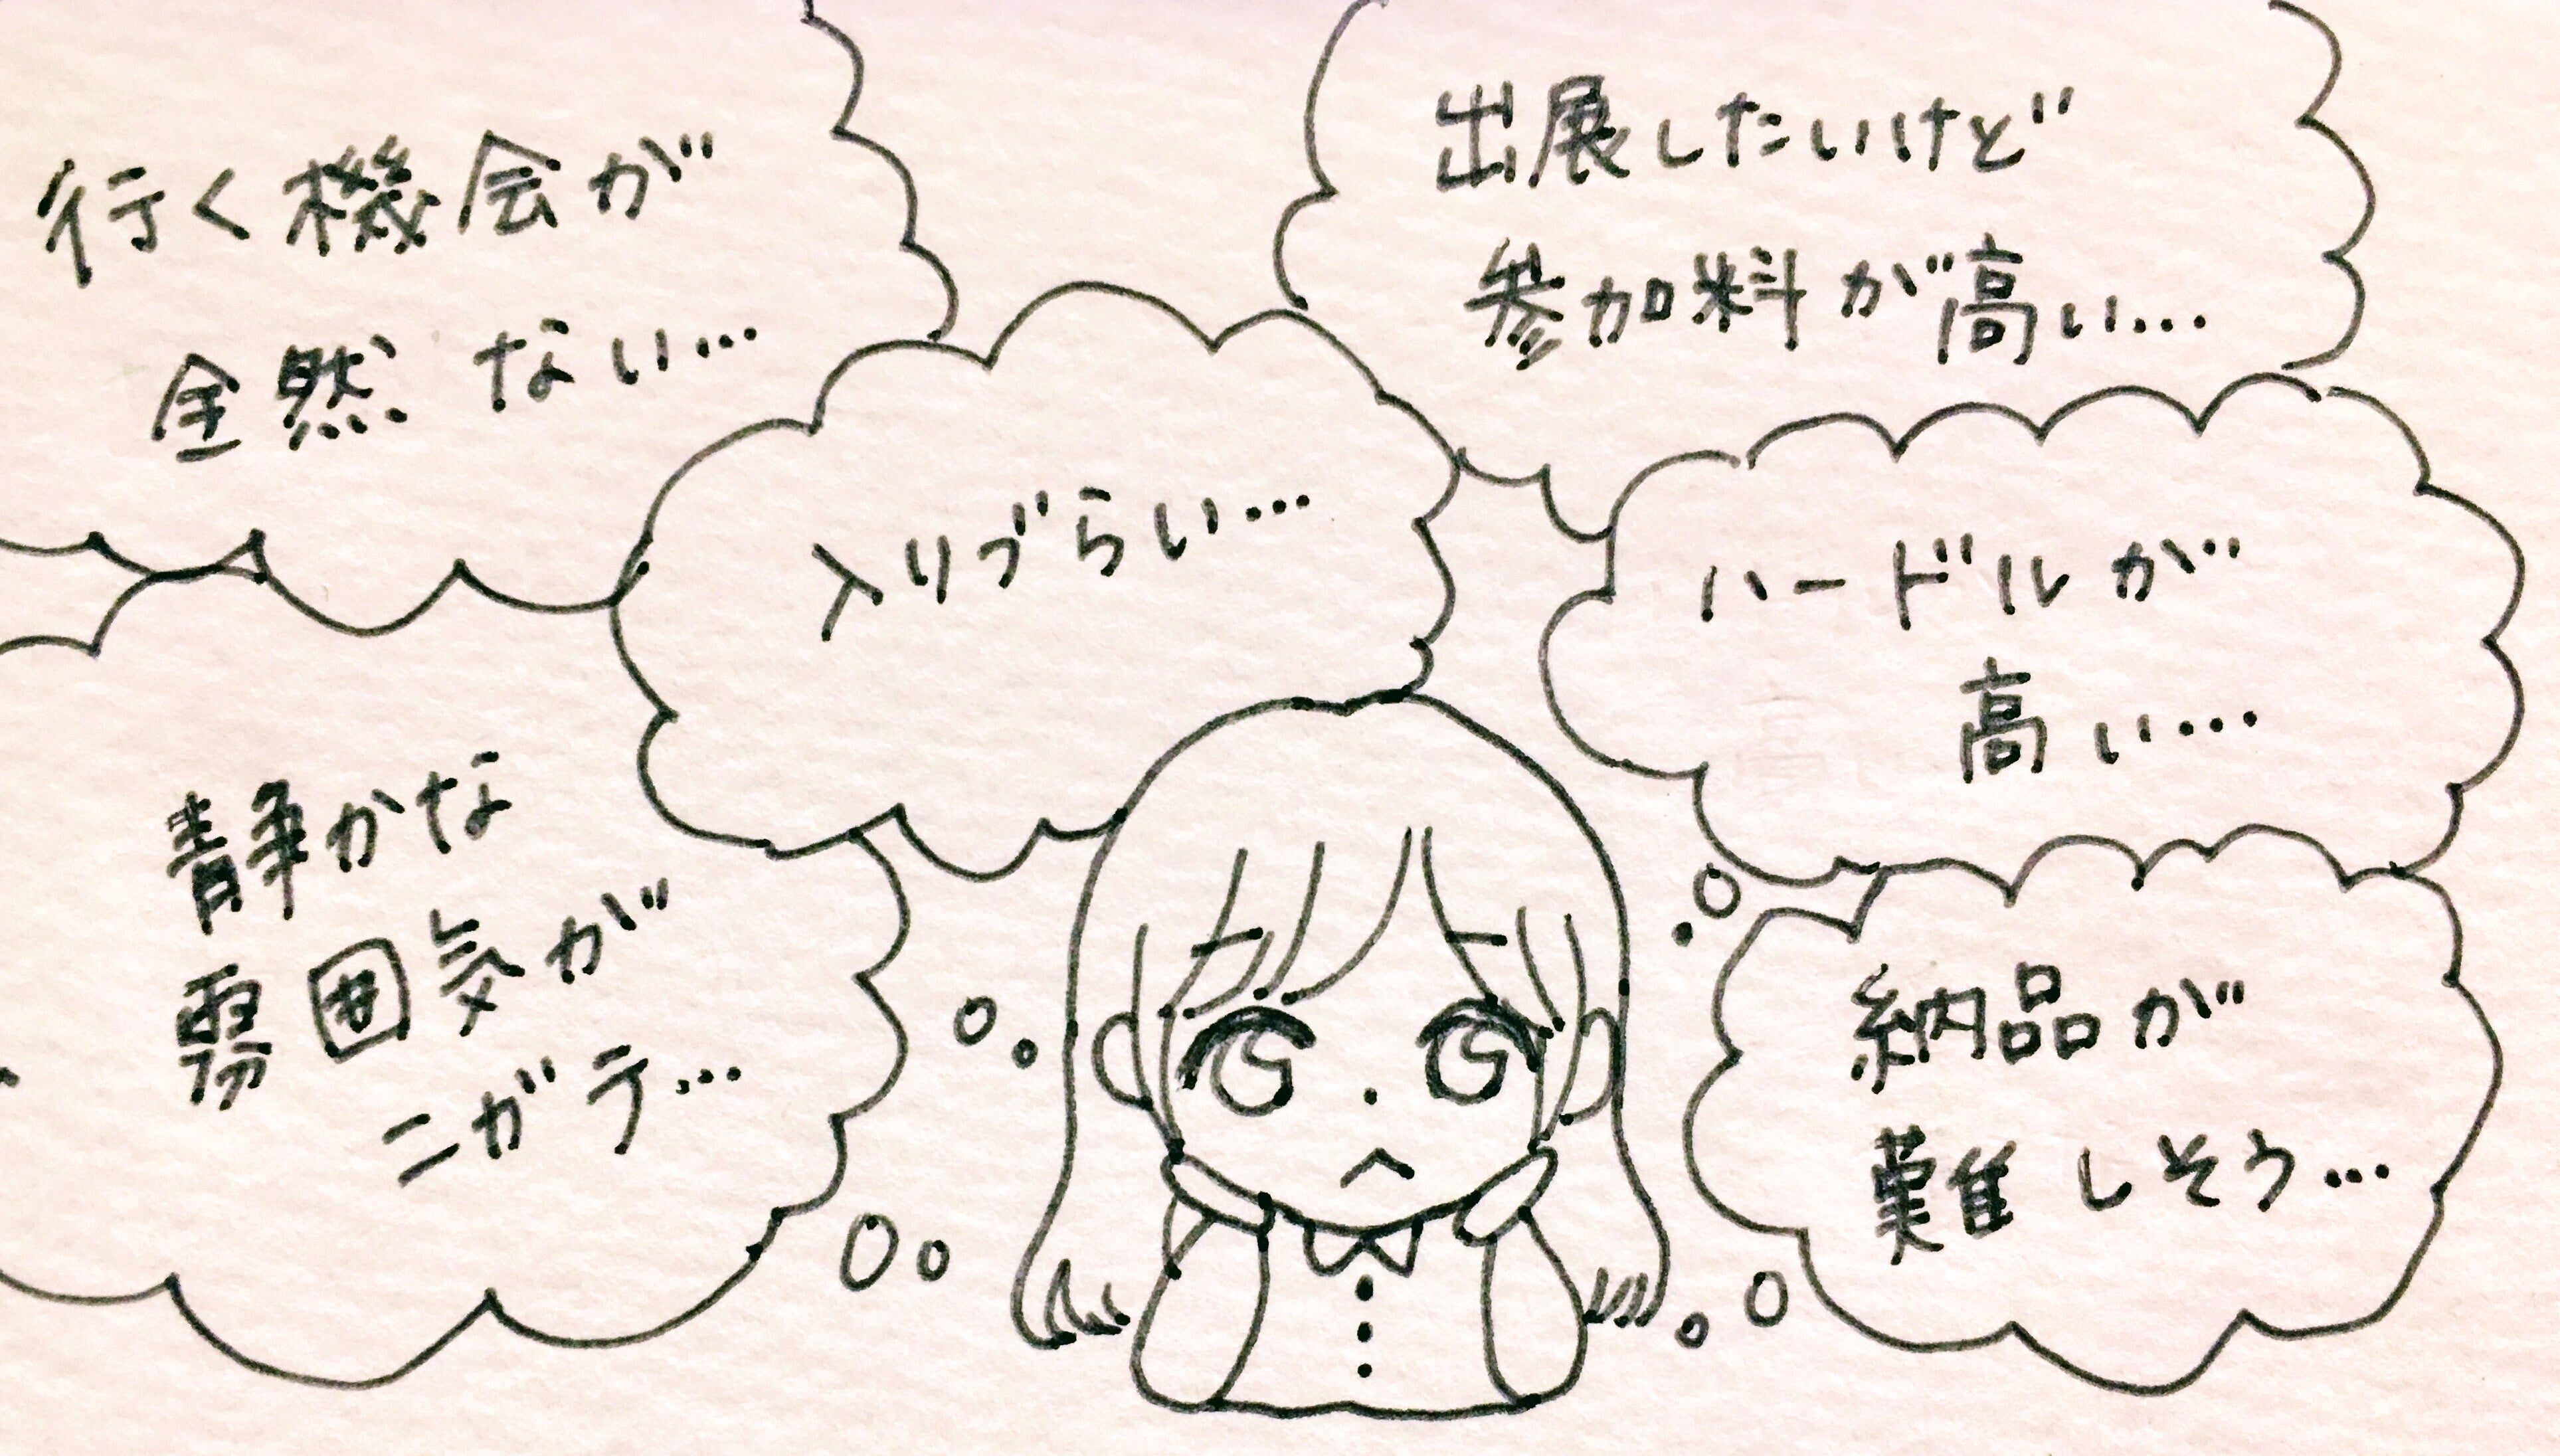 行く機会が
全然ない…
出展したいけど
参加料が高い…
入りづらい…
ハードルが
高い…
静かな
雰囲気が
ニガテ…
納品が
難しそう…